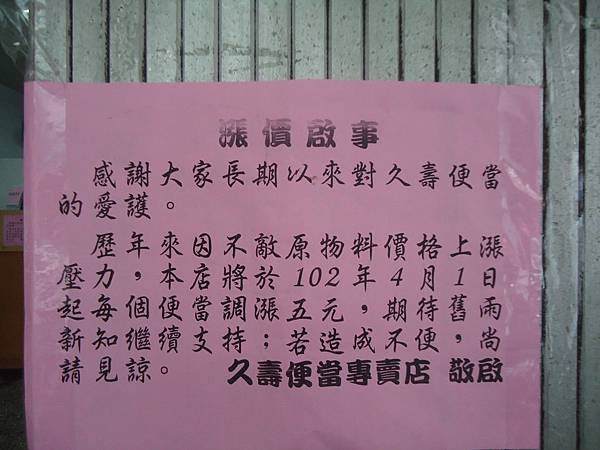 漲價啟事
感謝大家長期以來對久壽便當
的愛護。
歷年來因不敵原物料價格上漲
壓力，本店將於102年4月1日
起每個便當調漲五元，期待舊雨
新知繼續支持；若造成不便，尚
請見諒。 久壽便當專賣店 敬啟